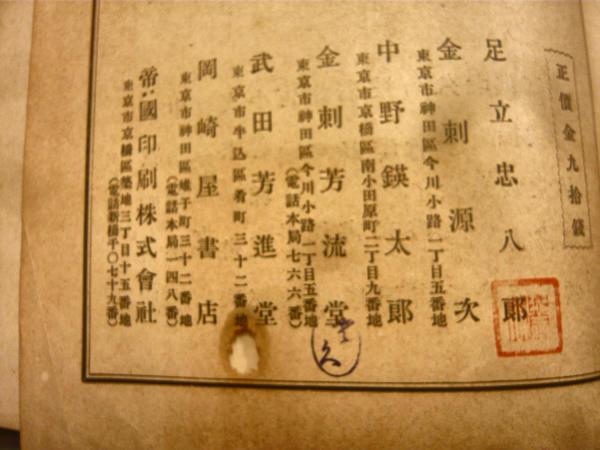 正價金九拾錢
足立忠八郎
金刺源次
東京市神田區今川小路一丁目五番地
中野鍈太郎
東京市京橋區南小田原町二丁目九番地
金刺芳流堂
東京市神田區今川小路一丁目五番地
（電話本局七六六番）
武田芳進堂
東京市牛込區肴町三十二番地
岡崎屋書店
東京市神田區雉子町三十二番地
（電話本局一四八番）
帝國印刷株式會社
東京市京橋區築地三丁目十五番地
（電話新橋千〇七十九番）